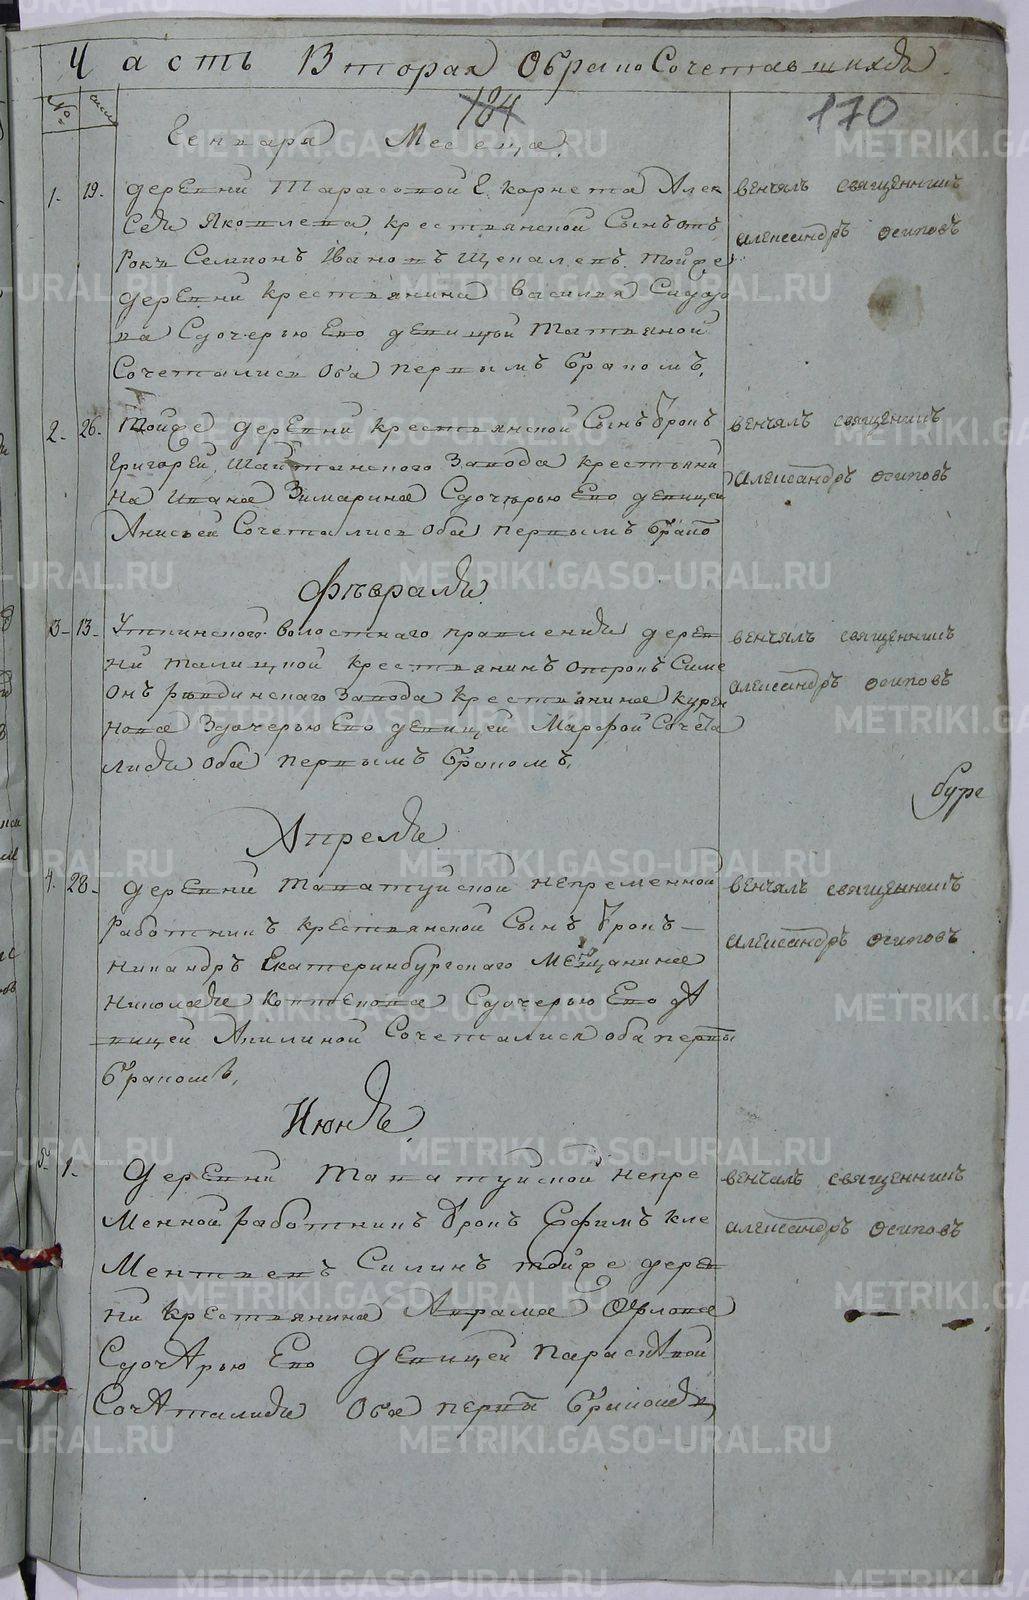 Часть Вторая Обрано Сочетавшихся
№ число
184
170
Генваря Месеца
1. 19. деревни Тарасовой Г. корнета Алек
сея Яковлева крестьянской Сынъ отъ
рокъ Семионъ Ивановъ Щепалевъ тойже
деревни крестьянина Василья Сидоро
ва Сдочерью Ево девицой Татьяной
Сочетались оба первымъ бракомъ,
венчалъ священникъ
александръ осиповъ
2. 26. Тойже деревни крестьянской Сынъ отрокъ
Григорей Шайтанского Завода крестьяни
на Ивана Зимарина Сдочерью Ево девицей
Анисьей Сочетались оба первымъ брако
венчалъ священникъ
александръ осиповъ
Февраля
3. 13. Уткинского волостнаго правления дерев
ни талицкой крестьянинъ отрокъ Симе
онъ Ревдинскаго Завода крестьянина курен
нова Здочерью Ево девицей Марфой Сочета
лися оба первымъ бракомъ,
венчалъ священникъ
александръ осиповъ
буре
Апреля
4. 28. деревни Талатуйской непременной
работникъ крестьянской Сынъ отрокъ
Никандръ Екатеринбургскаго Мещанина
Николая Сдочерью Ево дѣ
вицей Акилиной Сочетались оба первы
бракомъ,
венчалъ священникъ
александръ осиповъ
Июня
5. 1. деревни Талатуйской непре
менной работникъ отрокъ Ефимъ кле
ментьевъ Силинъ тойже дерев
ни крестьянина Аврама Орлова
Сдочерью Ево девицей парасковой
Сочеталися оба первы бракомъ
венчалъ священникъ
александръ осиповъ
METRIKI.GASO-URAL.RU